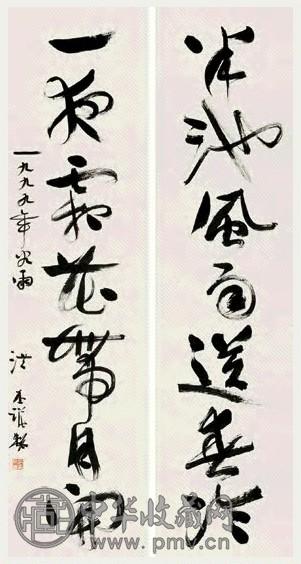 半池风雨送春冷
一夜霜花带月开
一九九九年谷雨
洪
中华收藏网
www.pmv.cn